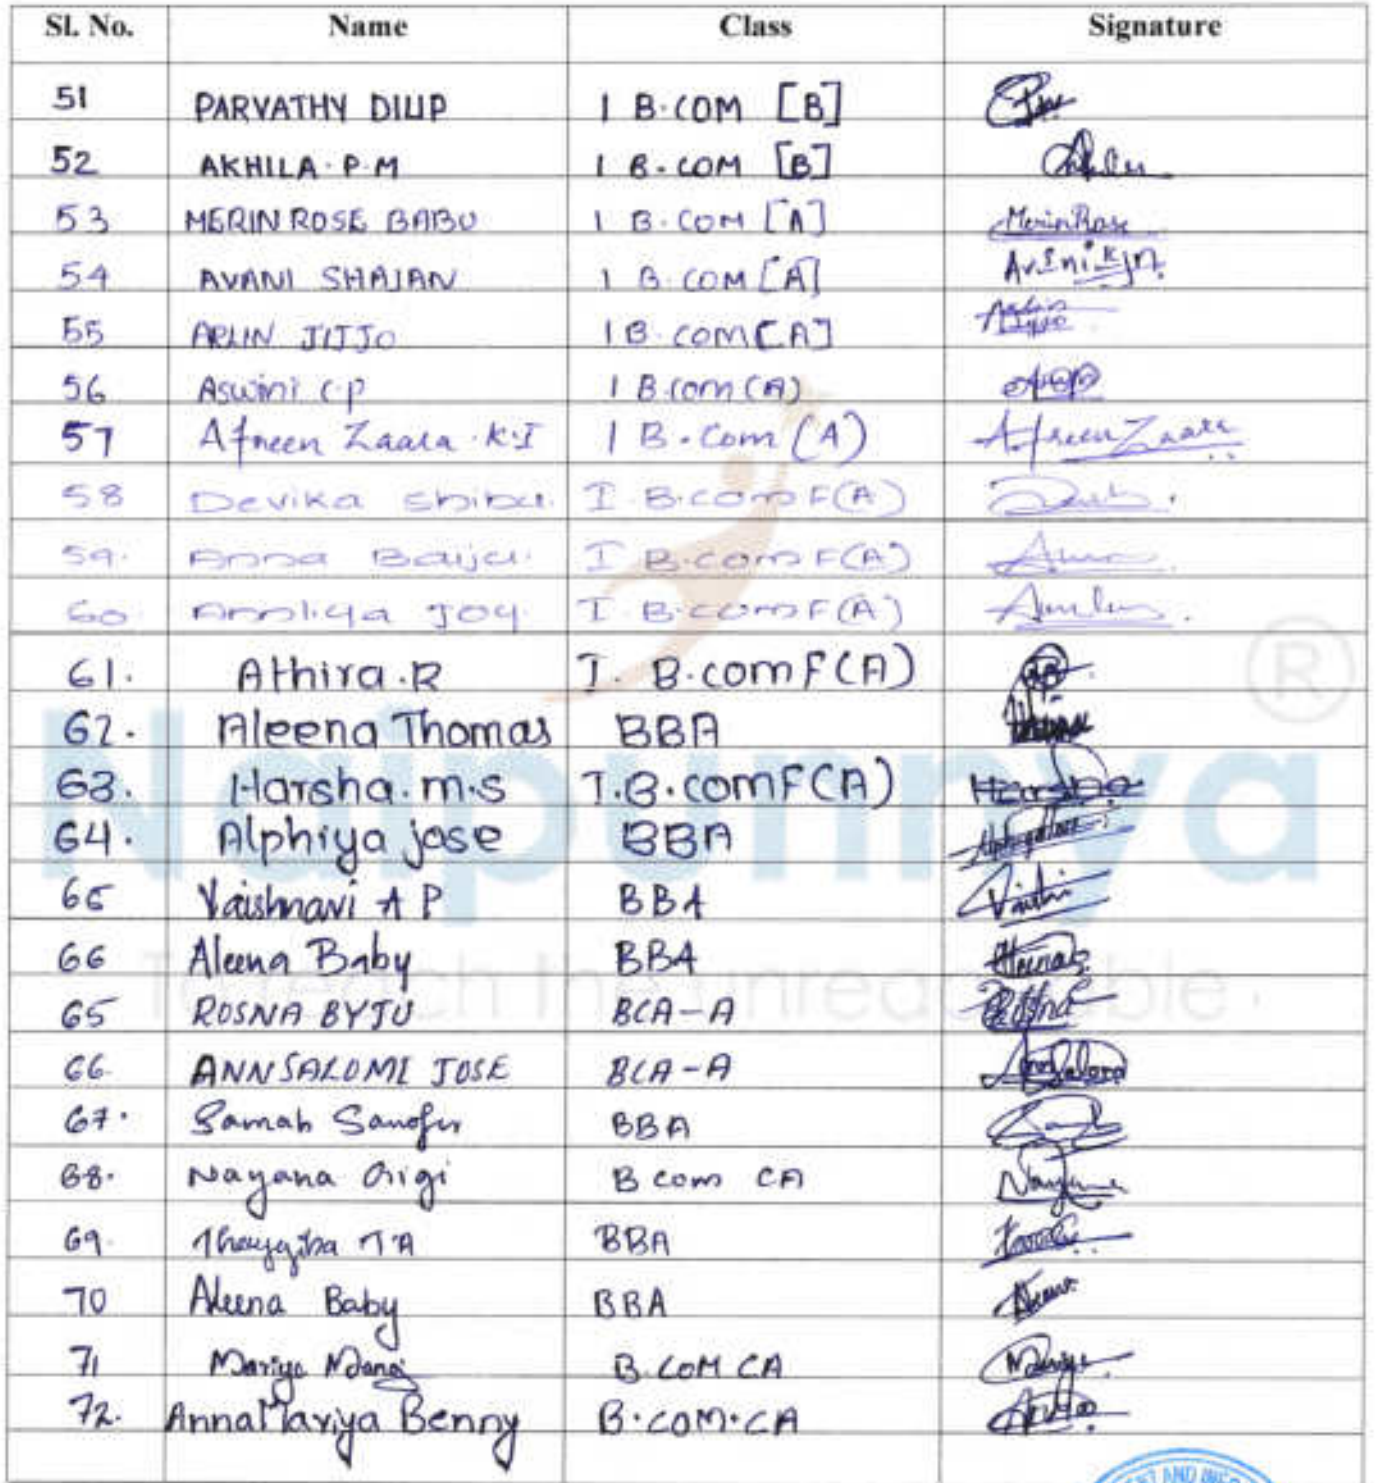 Sl. No. Name Class Signature
51 PARVATHY DILIP I B.COM [B]
52 AKHILA.P.M I B.COM [B]
53 MERIN ROSE BABU I B.COM [A] Merin Rose
54 AVANI SHAJAN I B.COM [A]
55 ARLIN JIJJO I B.COM [A]
56 Aswini C P I B.com (A)
57 Afreen Zaara K.I I B.Com (A) Afreen Zaara
58 Devika Shibu. I.B.com F(A)
59. Anna Baiju. I B.com F(A)
60. Annliya Joy. I.B.com F(A)
61. Athira.R I. B.com F(A)
62. Aleena Thomas BBA
63. Harsha.m.s I.B.com F(A) Harsha
64. Alphiya jose BBA
65 Vaishnavi A P BBA
66 Aleena Baby BBA
65 ROSNA BYJU BCA-A
66. ANN SALOMI JOSE BCA-A
67. Samah Sanofer BBA
68. Nayana Gigi B com CA Nayana
69. T A BBA
70 Aleena Baby BBA
71 Mariya B.COM CA
72. AnnaMariya Benny B.COM.CA
Naipunnya ®
To reach the unreachable